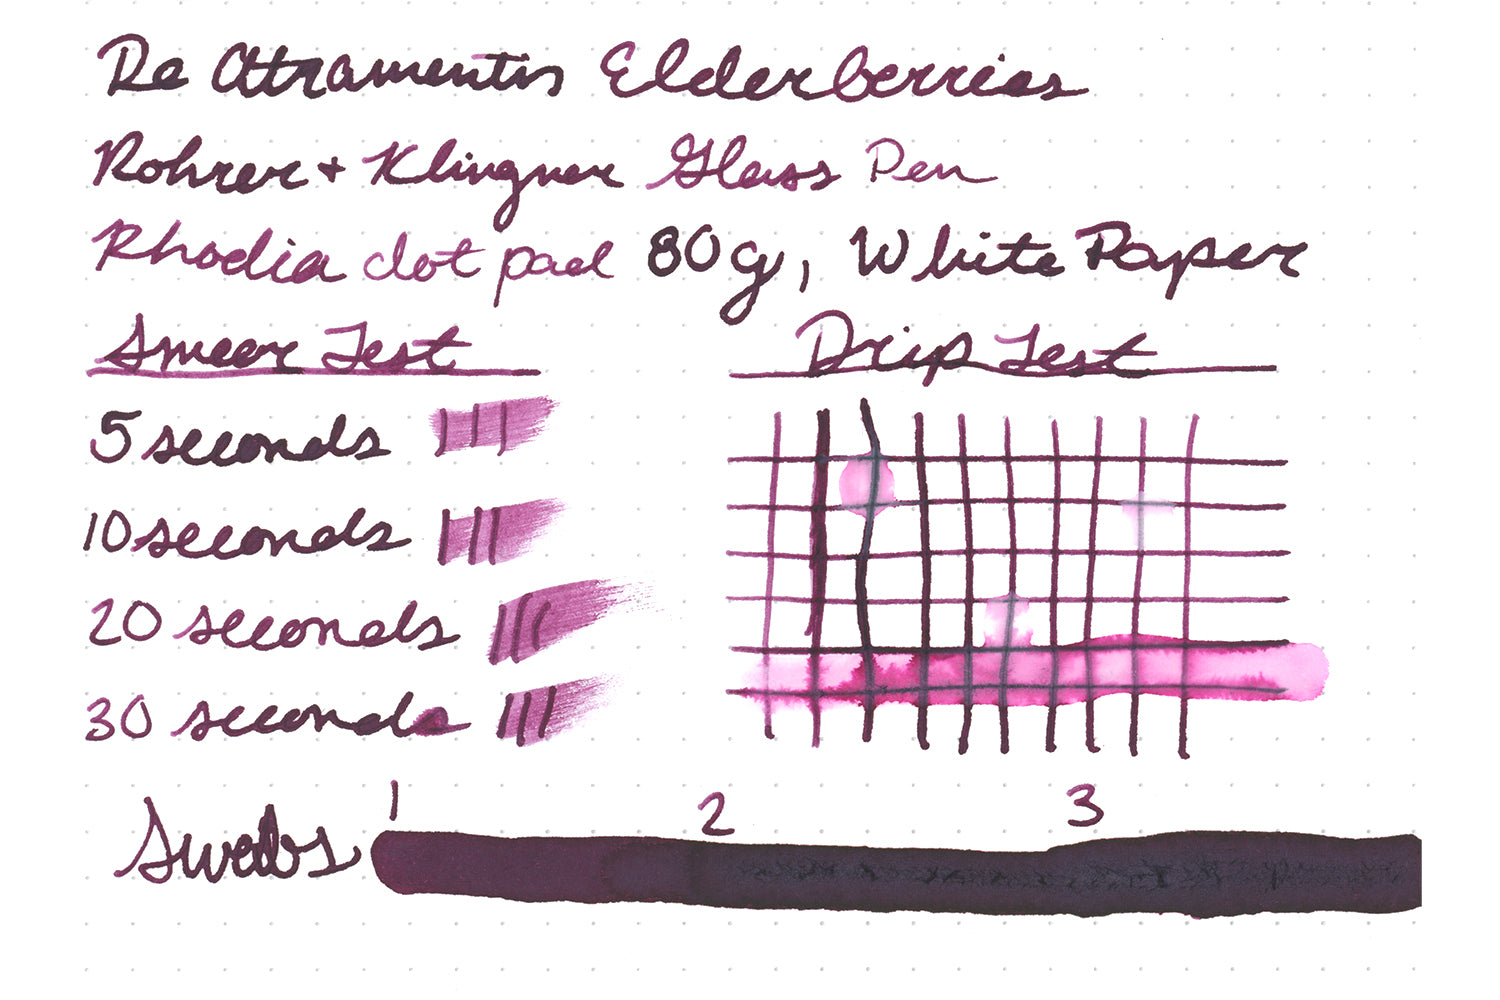 De Atramentis Elderberries
Rohrer + Klingner Glass Pen
Rhodia dot pad 80g, White Paper
Smear Test
Drip Test
5 seconds
10 seconds
20 seconds
30 seconds
Swabs 1 2 3